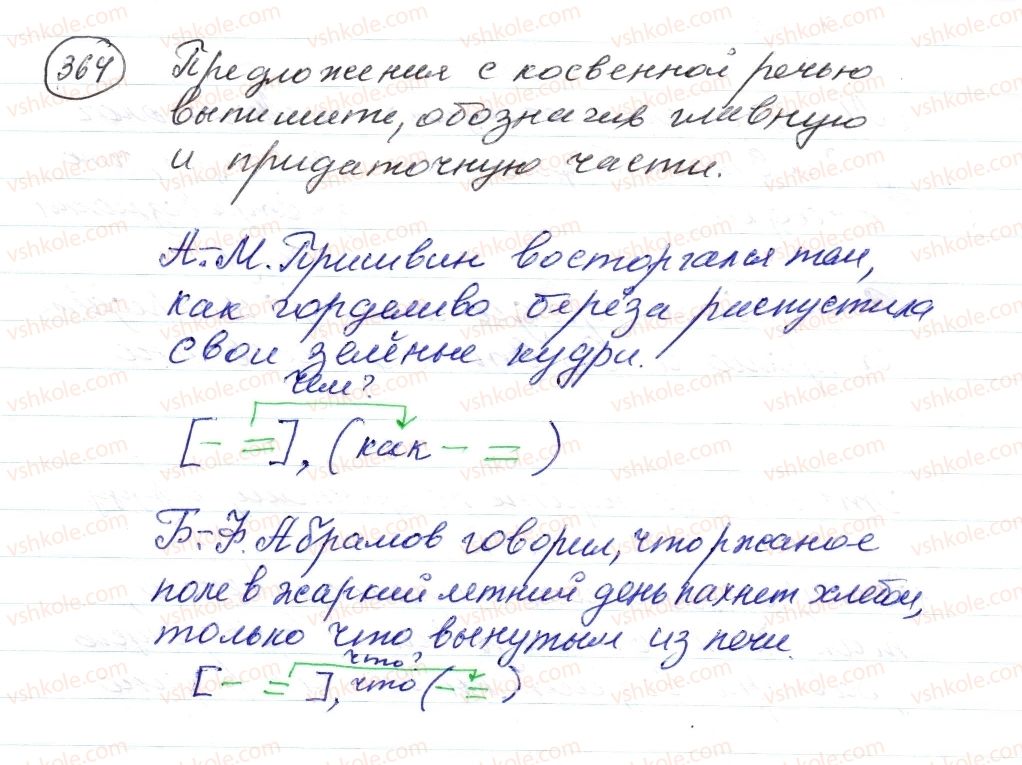 364 Предложения с косвенной речью
выпишите, обозначив главную
и придаточную части.
А:-М. Пришвин восторгался тем,
как горделиво берёза распустила
свои зелёные кудри.
чем?
[- =], (как - =)
Б:-Ф. Абрамов говорил, что ржаное
поле в жаркий летний день пахнет хлебом,
только что вынутым из печи.
что?
[- =], что (- =)